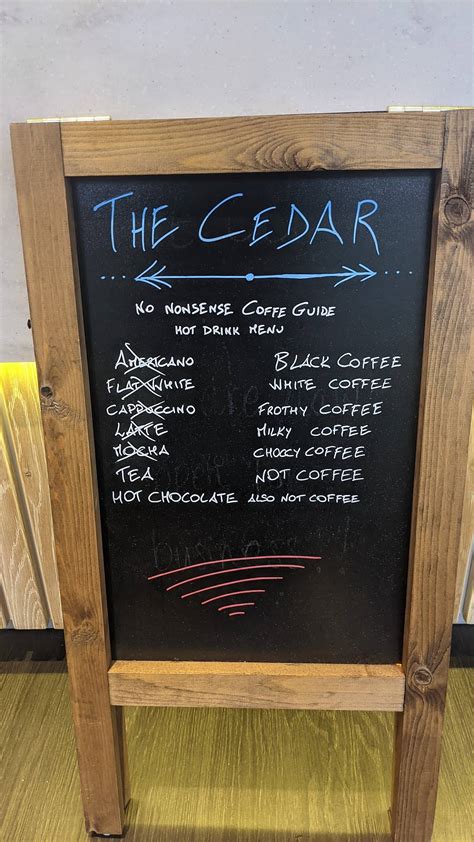 THE CEDAR
NO NONSENSE COFFE GUIDE
HOT DRINK MENU
AMERICANO BLACK COFFEE
FLAT WHITE WHITE COFFEE
CAPPUCCINO FROTHY COFFEE
LATTE MILKY COFFEE
MOCHA CHOCCY COFFEE
TEA NOT COFFEE
HOT CHOCOLATE ALSO NOT COFFEE
business